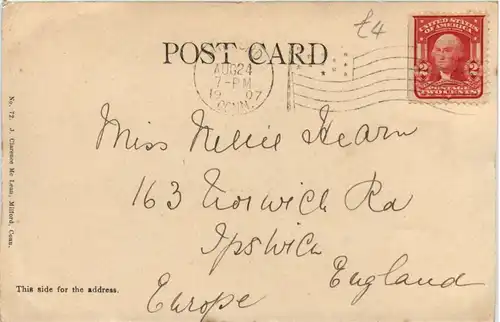 £4
UNITED STATES
OF AMERICA
POST CARD
AUG 24
7-PM
1907
CONN.
2 2
POSTAGE
TWO CENTS
Miss Nellie Hearn
163 Norwich Rd
Ipswich
England
Europe
This side for the address.
No. 72. J. Clarence Mc Lean, Milford, Conn.